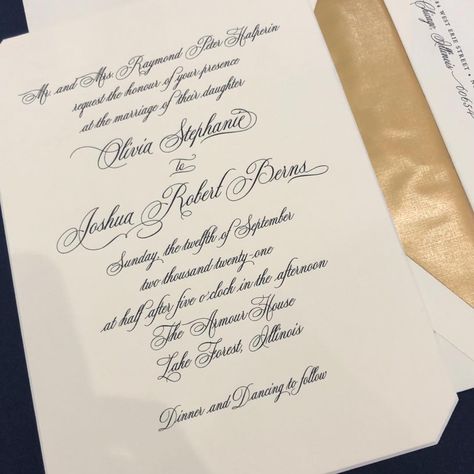 Mr. and Mrs. Raymond Peter Halperin
request the honour of your presence
at the marriage of their daughter
Olivia Stephanie
to
Joshua Robert Berns
Sunday, the twelfth of September
two thousand twenty-one
at half after five o'clock in the afternoon
The Armour House
Lake Forest, Illinois
Dinner and Dancing to follow
WEST ERIE STREET
Chicago, Illinois 60654